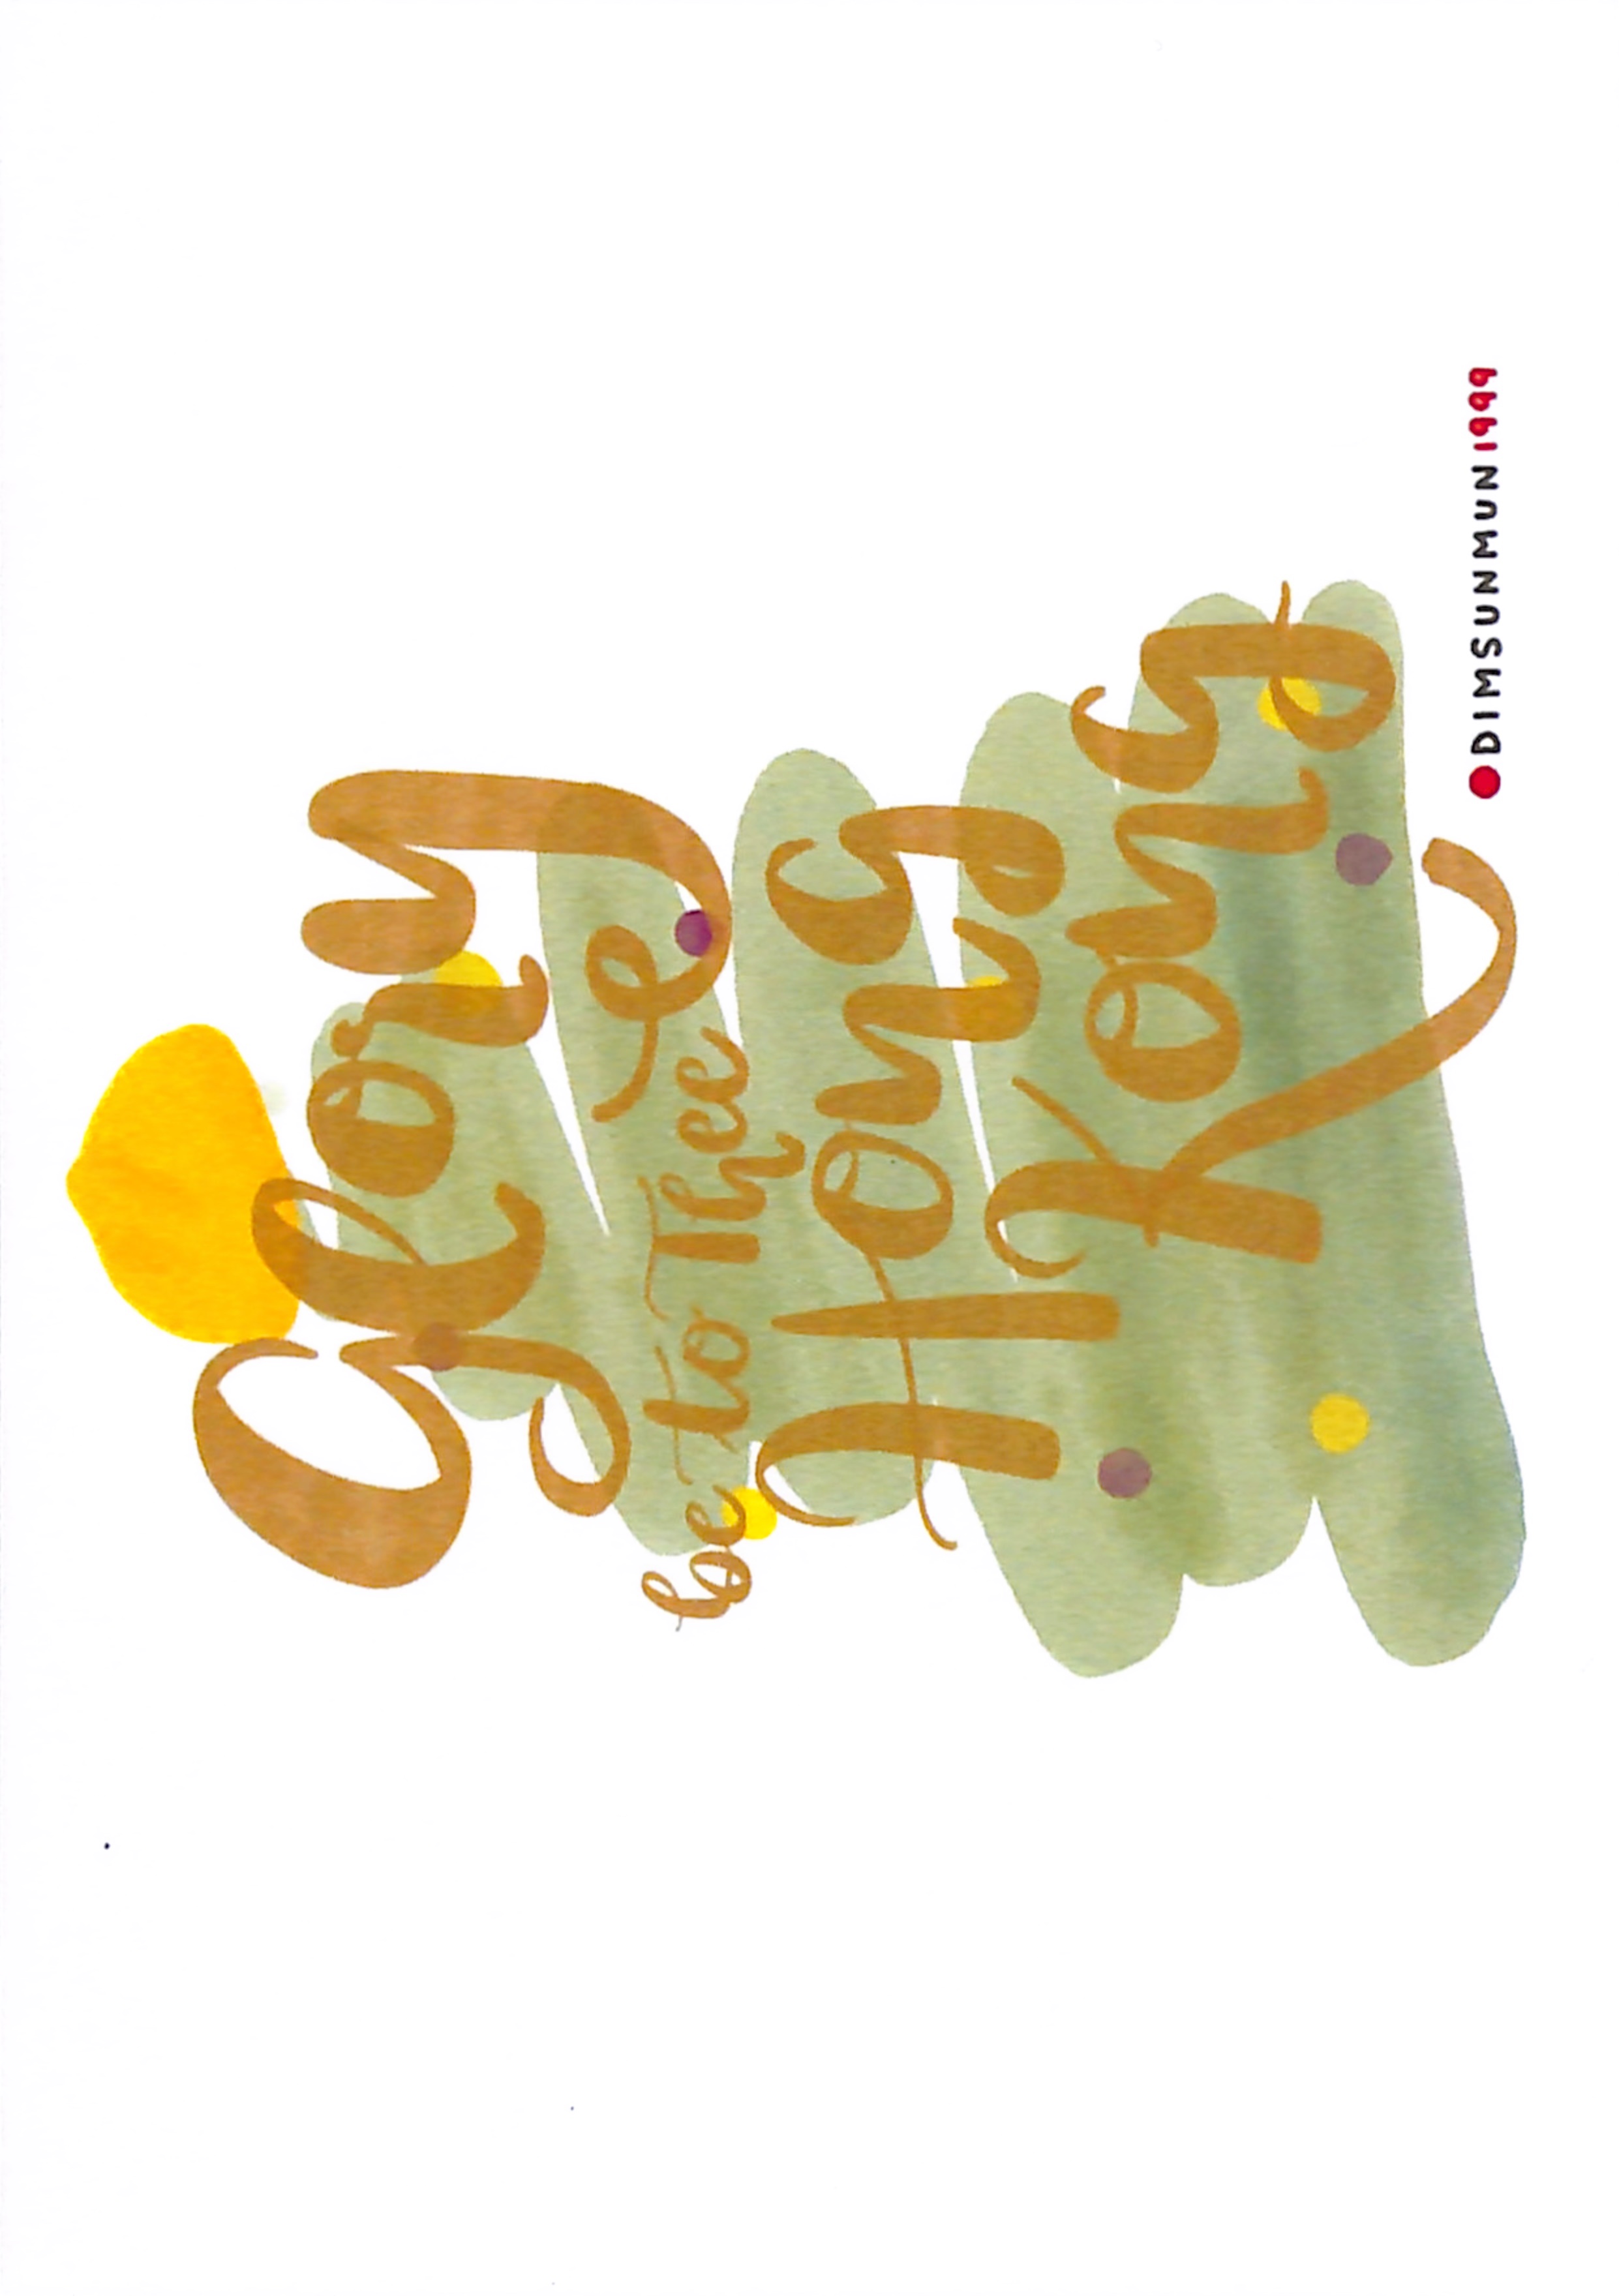 Glory
be to Thee
Hong
Kong
DIMSUNMUN1999